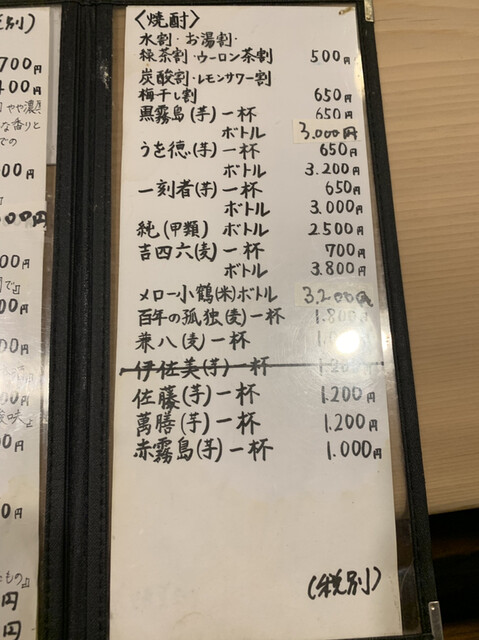 〈焼酎〉
水割・お湯割・
緑茶割・ウーロン茶割 500円
炭酸割・レモンサワー割
梅干し割 650円
黒霧島(芋)一杯 650円
ボトル 3.000円
うを徳(芋)一杯 650円
ボトル 3.200円
一刻者(芋)一杯 650円
ボトル 3.000円
純(甲類) ボトル 2500円
吉四六(麦)一杯 700円
ボトル 3.800円
メロー小鶴(米)ボトル 3.200円
百年の孤独(麦)一杯 1.800円
兼八(麦)一杯
伊佐美(芋)一杯
佐藤(芋)一杯 1.200円
萬膳(芋)一杯 1.200円
赤霧島(芋)一杯 1.000円
(税別)
税別)
700円
400円
やや濃
な香りと
での
00円
00円
味』
もの』
円
円